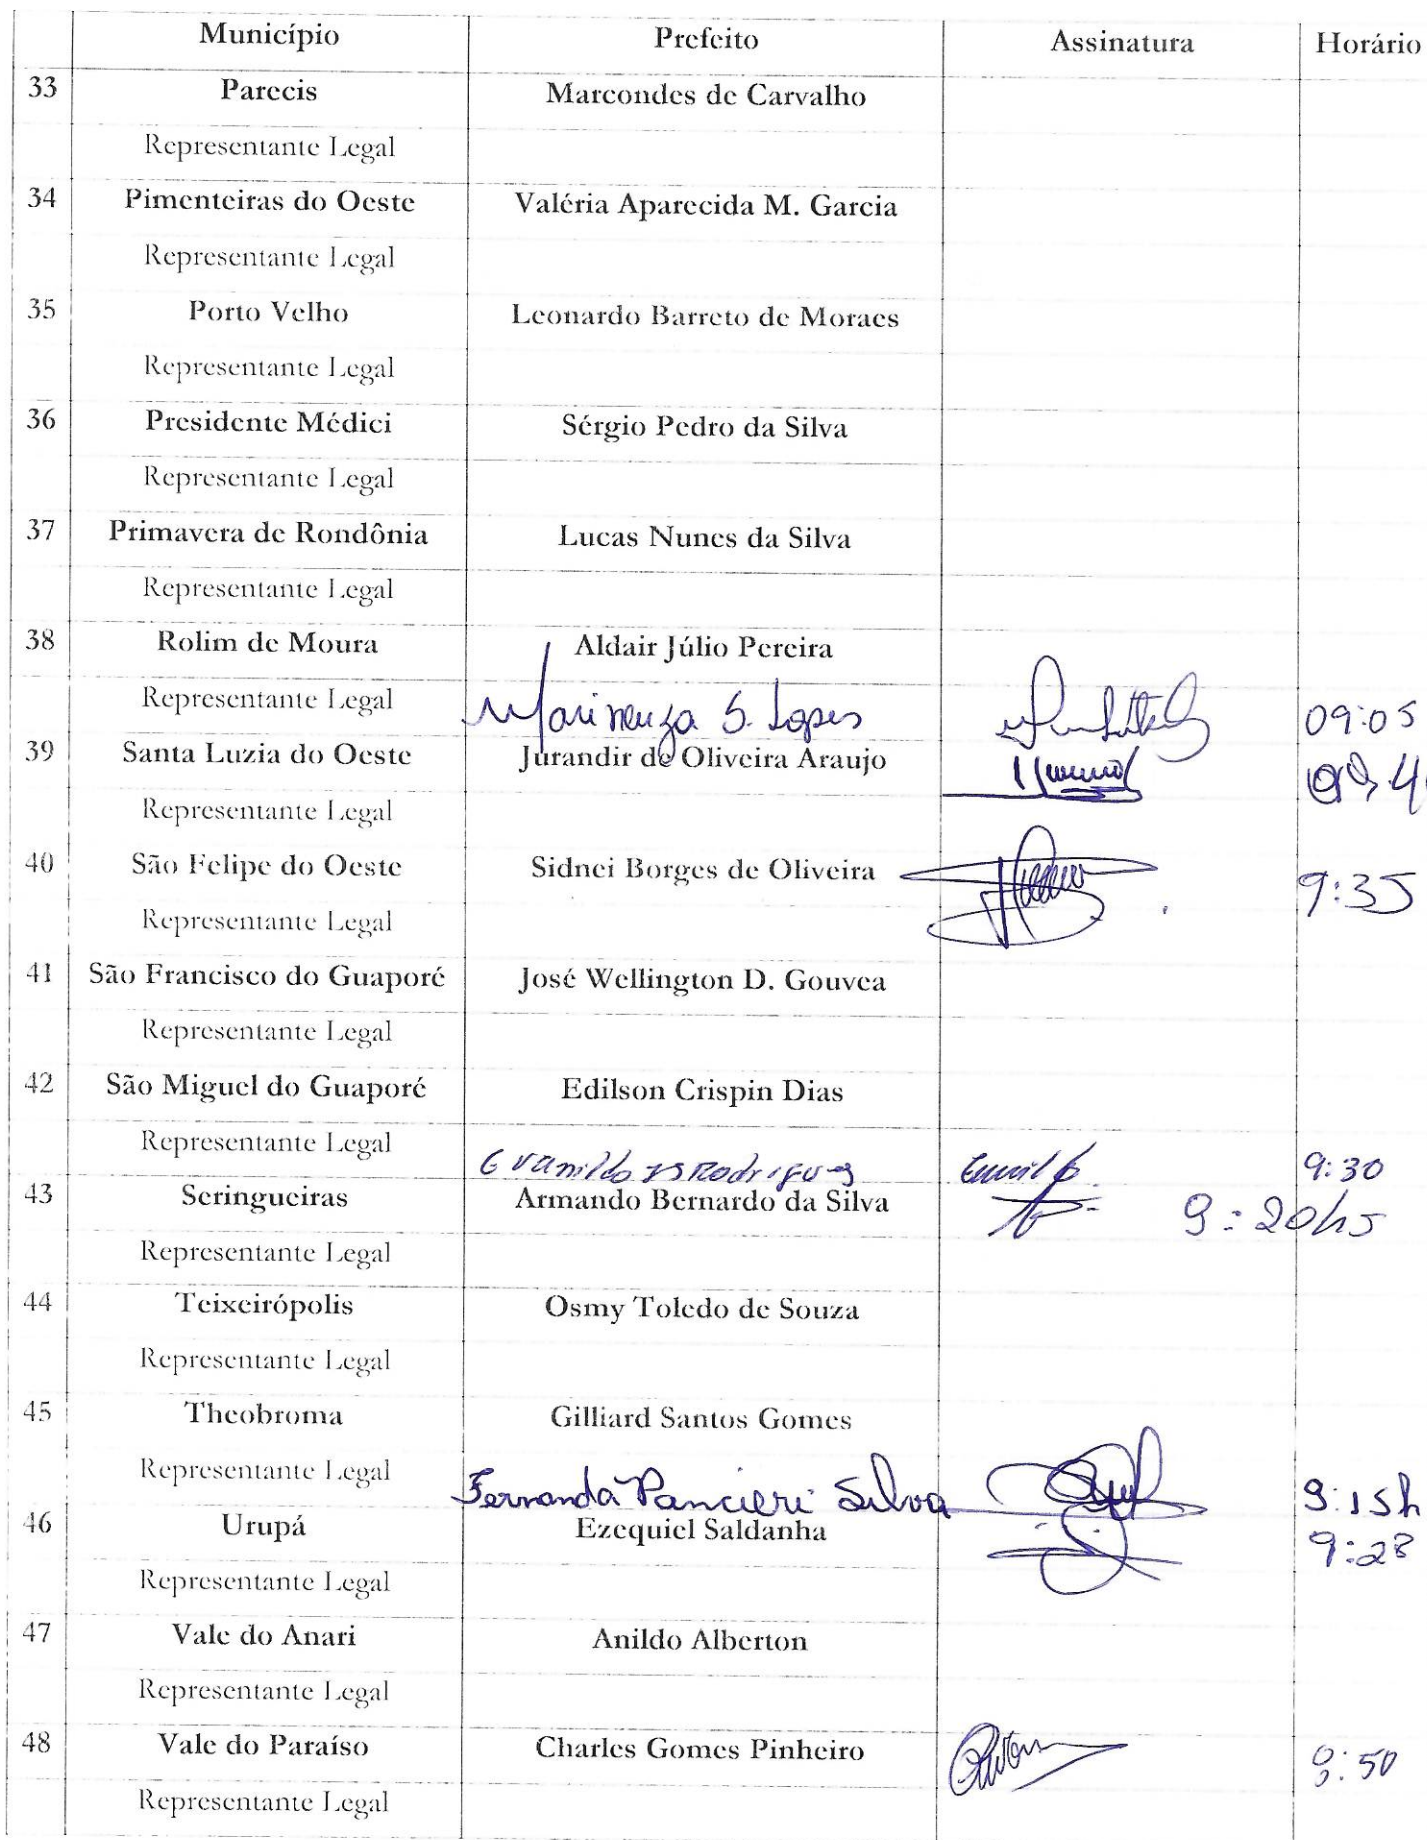 Município Prefeito Assinatura Horário
33 Parecis Marcondes de Carvalho
Representante Legal
34 Pimenteiras do Oeste Valéria Aparecida M. Garcia
Representante Legal
35 Porto Velho Leonardo Barreto de Moraes
Representante Legal
36 Presidente Médici Sérgio Pedro da Silva
Representante Legal
37 Primavera de Rondônia Lucas Nunes da Silva
Representante Legal
38 Rolim de Moura Aldair Júlio Pereira
Representante Legal Marineuza S. Lopes 09:05
39 Santa Luzia do Oeste Jurandir de Oliveira Araujo
Representante Legal
40 São Felipe do Oeste Sidnei Borges de Oliveira 9:35
Representante Legal
41 São Francisco do Guaporé José Wellington D. Gouvea
Representante Legal
42 São Miguel do Guaporé Edilson Crispin Dias
Representante Legal 9:30
43 Seringueiras Armando Bernardo da Silva 9:20hs
Representante Legal
44 Teixeirópolis Osmy Toledo de Souza
Representante Legal
45 Theobroma Gilliard Santos Gomes
Representante Legal Fernanda Pancieri Silva 9:15h
46 Urupá Ezequiel Saldanha 9:23
Representante Legal
47 Vale do Anari Anildo Alberton
Representante Legal
48 Vale do Paraíso Charles Gomes Pinheiro 9:50
Representante Legal